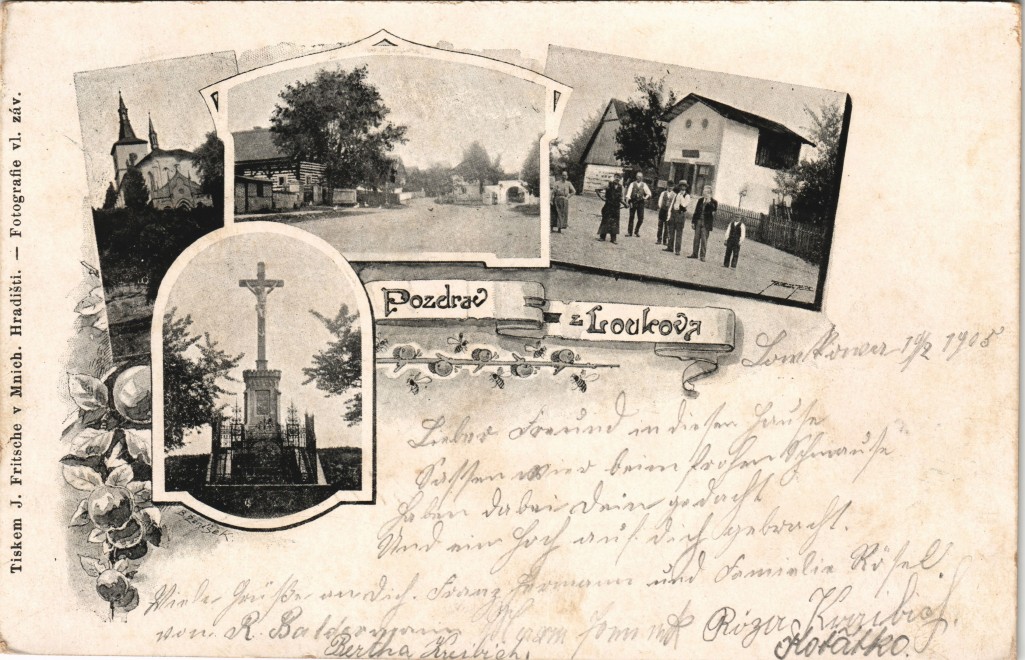 Tiskem J. Fritsche v Mnich. Hradišti. — Fotografie vl. záv.
Pozdrav
z Loukova
Loukowa 19/2 1905
Lieber Freund in diesen Hause
Saßen wier beim frohen Schmause
haben dabei dein gedacht
Und ein hoch auf dich gebracht.
Viele Grüße an Dich. Franz Hermann und Familie Rösel.
von R. Baldermann
Bertha Kreibich.
Róza